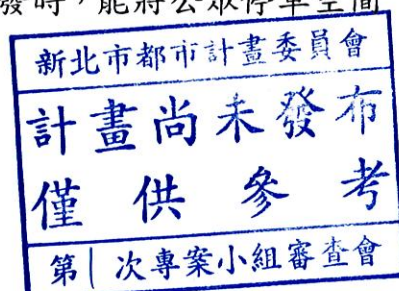 發時，能將公眾停車空間
新北市都市計畫委員會
計畫尚未發布
僅供參考
第1次專案小組審查會